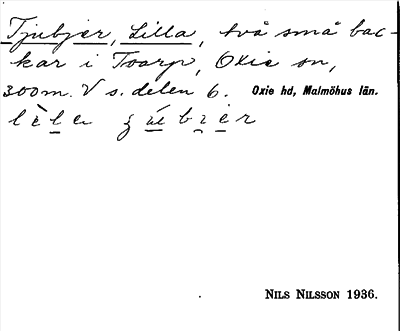 Tjubjer, Lilla, två små bac-
kar i Toarp, Oxie sn,
300m. V s. delen 6. Oxie hd, Malmöhus län.
NILS NILSSON 1936.